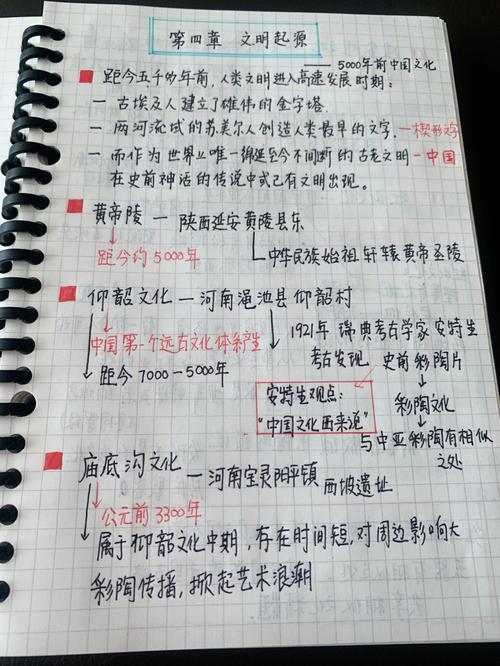 第四章 文明起源
—— 5000年前中国文化
距今五千多年前，人类文明进入高速发展时期：
— 古埃及人建立了雄伟的金字塔.
— 两河流域的苏美尔人创造人类最早的文字，—楔形文字
— 而作为世界上唯一绵延至今不间断的古老文明 — 中国
在史前神话的传说中或已有文明出现。
黄帝陵 — 陕西延安黄陵县东
距今约5000年
中华民族始祖轩辕黄帝圣陵
仰韶文化 — 河南渑池县仰韶村
中国第一个远古文化体系产生
1921年 瑞典考古学家安特生
考古发现 史前彩陶片
距今7000—5000年
安特生观点：
“中国文化西来说”
彩陶文化
与中亚彩陶有相似
之处
庙底沟文化 — 河南宝灵阳平镇 西坡遗址
公元前3300年
属于仰韶文化中期，存在时间短，对周边影响大
彩陶传播，掀起艺术浪潮